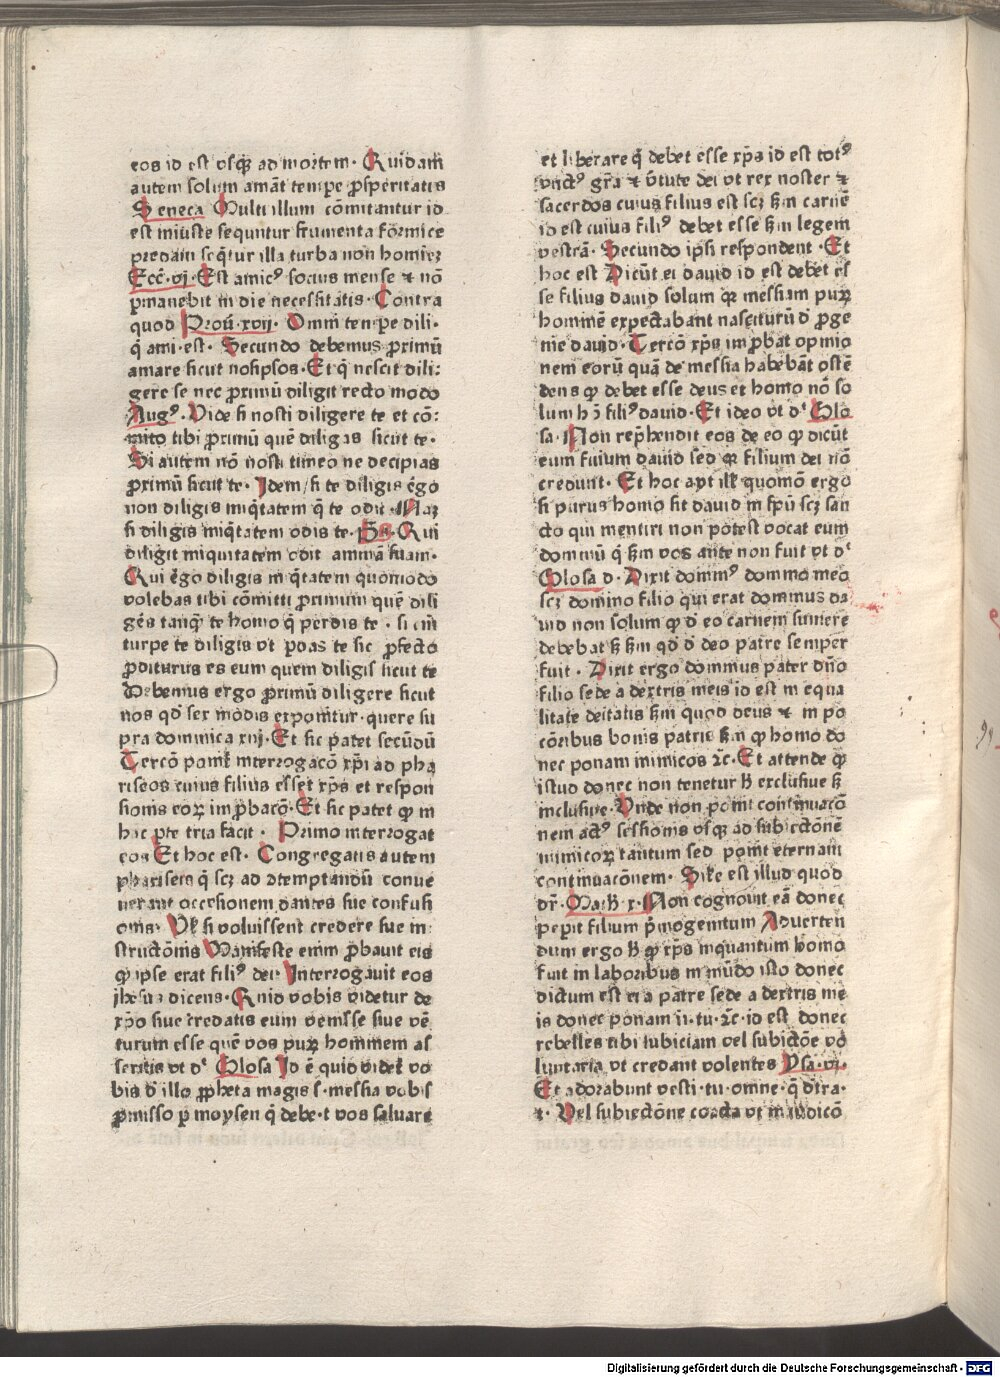 eos id est vsqꝫ ad mortem · Quidam̄
autem solum amāt tempe ꝓsperitatis
Seneca Multi illum cōmitantur id
est miuste sequntur frumenta formice
predam seq̄tur illa turba non homīeꝫ
Ecc̄·vj· Est amicꝰ socius mense ⁊ nō
ꝑmanebit in die necessitatis · Contra
quod Prou̅·xvij· Omni tempe dili·
q̄ ami·est · Secundo debemus ꝓximū
amare sicut nosipsos · Et q̄ nescit dili:
gere se nec ꝓximū diligit recto modo
Augꝰ. Vide si nosti diligere te et cō:
mito tibi ꝓximū quē diligas sicut te ·
Si autem nō nosti timeo ne decipias
ꝓximū sicut te · Idem si te diligis ergo
non diligis iniq̄tatem q̄ te odit · Naꝫ
si diligis iniq̄tatem odis te · Qui
diligit iniquitatem odit animā suam·
Qui ergo diligis in q̄tatem quomodo
volebas tibi cōmitti ꝓximum quē dili
ges tanqꝫ te homo q̄ perdis te · si em̄
turpe te diligis vt ꝑdas te sic ꝓfecto
ꝓditurus es eum quem diligis sicut te
Debemus ergo ꝓximū diligere sicut
nos qd̄ sex modis exponitur · quere su
pra dominica xiij · Et sic patet secūdū
Tercō ponit̄ interrogacō xp̄i ad pha
riseos cuius filius esset xp̄s et respon
sionis eoꝝ imꝓbacō· Et sic patet ꝙ in
hac ꝑte tria facit · Primo interrogat
eos Et hoc est · Congregatis autem
phariseis q̄ scꝫ ad ꝯtemptandū conue
nerant occasionem dantes sue confusi
onis· si voluissent credere sue in:
structōnis Manifeste enim ꝓbauit eis
ꝙ ipse erat filiꝰ dei Interrogauit eos
ihesus dicens · Quid vobis videtur de
xp̄o siue credatis eum venisse siue vē
turum esse quē vos puꝝ hominem as
seritis vt dˢ Glosa Id ē quid videt̄ vo
bis d̄ illo ꝓpheta magis s̄·messia vobis
ꝓmisso ꝑ moysen q̄ debe·t vos saluare
et liberare q̄ debet esse xp̄s id est totꝰ
vnctꝰ gr̄a ⁊ v̄tute dei vt rex noster ⁊
sacerdos cuius filius est scꝫ ẜm carnē
id est cuius filiꝰ debet esse ẜm legem
vestrā · Secundo ipsi respondent · Et
hoc est Dicūt ei dauid id est debet es
se filius dauid solum qꝛ messiam puꝝ
hominē expectabant nasciturū d̄ ꝓge
nie dauid · Tercō xp̄s imꝓbat opinio
nem eorū quā de messia habebāt ostē
dens ꝙ debet esse deus et homo nō so
lum hō filiꝰ dauid · Et ideo vt dˢ Glo
sa · Non rep̄hendit eos de eo ꝙ dicūt
eum filium dauid sed qꝛ filium dei nō
credunt · Et hoc apt ill quomō ergo
si purus homo sit dauid in sp̄u scꝫ san
cto qui mentiri non potest vocat eum
dominū q̄ ẜm vos ante non fuit vt dˢ
Glosa d · Dixit dominꝰ domino meo
scꝫ domino filio qui erat dominus da
uid non solum ꝙ d̄ eo carnem sumere
debebat sꝫ ẜm qd̄ d̄ deo patre semper
fuit · Dixit ergo dominus pater dn̄o
filio sede a dextris meis id est in equa
litate deitatis ẜm quod deus ⁊ in po
cōribus bonis patris ẜm ꝙ homo do
nec ponam inimicos ⁊c̄· Et attende ꝙ
istud donec non tenetur h̄ exclusiue sꝫ
inclusiue · Vnde non ponit continuacō
nem actꝰ sessionis vsqꝫ ad subiectōnē
inimicoꝝ tantum sed ponit eternam
continuacōnem · Sile est illud quod
dr̄ · Math̄ x· Non cognouit eā donec
peperit filium ṗmogenitum Aduerten
dum ergo h̄ ꝙ xp̄s inquantum homo
fuit in laboribus in mūdo isto donec
dictum est ei a patre sede a dextris me
is donec ponam ii·tu·⁊c̄·id est donec
rebelles tibi subiciam vel subiectōe vo
luntaria vt credant volentes Ysa·vi·
Et adorabunt vesti·tu·omne·q̄ dtra·
⁊· Vel subiectōne coacta vt in iudicō
Digitalisierung gefördert durch die Deutsche Forschungsgemeinschaft - DFG